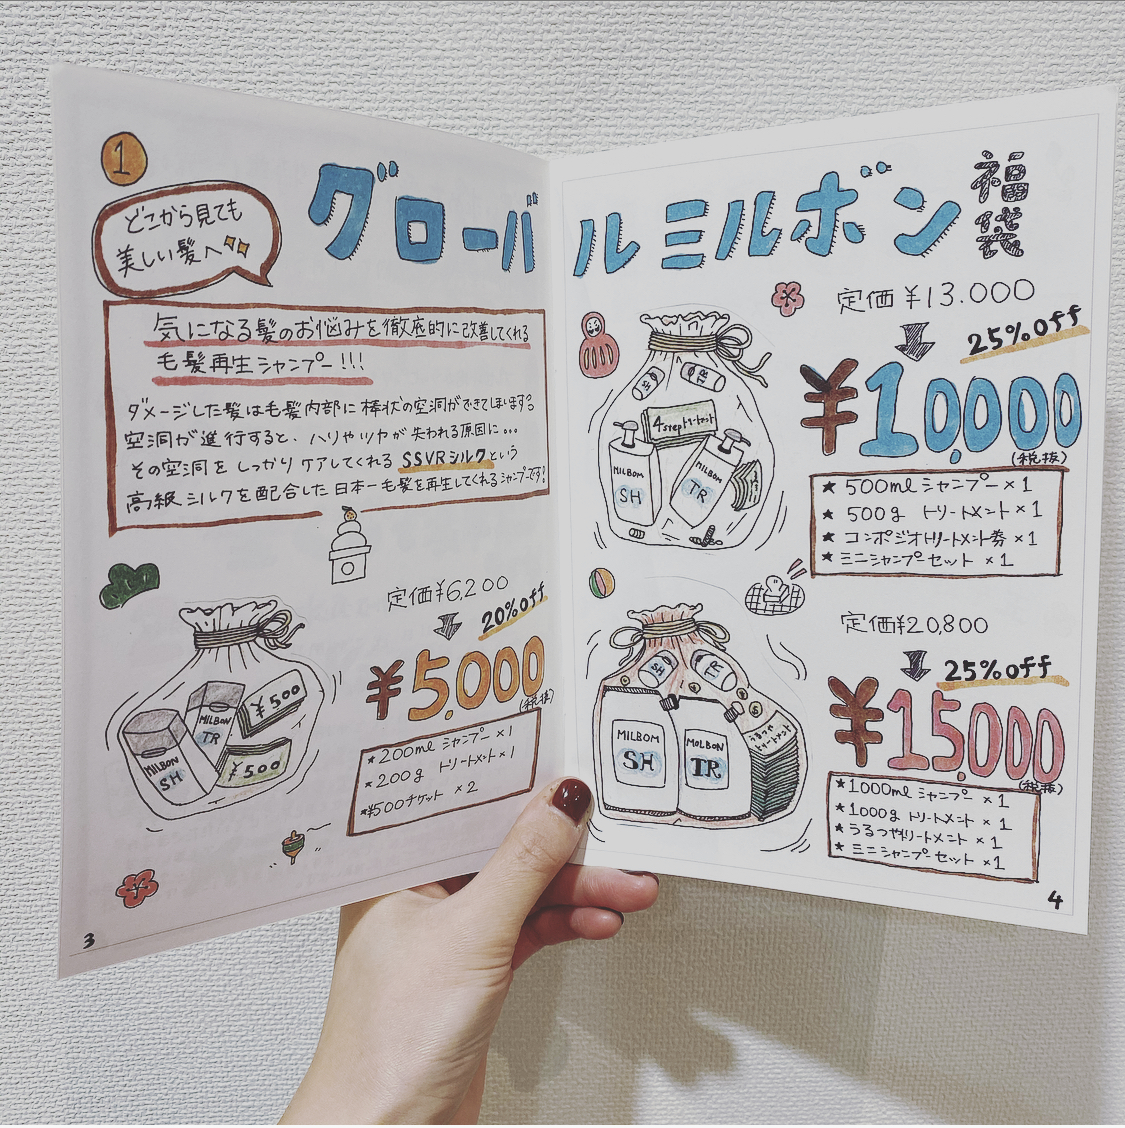 1
どこから見ても
美しい髪へ
グローバルミルボン
福袋
気になる髪のお悩みを徹底的に改善してくれる
毛髪再生シャンプー!!!
ダメージした髪は毛髪内部に棒状の空洞ができてしまいます?
空洞が進行すると、ハリやツヤが失われる原因に...
その空洞をしっかりケアしてくれるSSVRシルクという
高級シルクを配合した日本一毛髪を再生してくれるシャンプーです!
定価¥6,200
20%off
¥5,000
(税抜)
★200ml シャンプー×1
★200g トリートメント×1
★¥500チケット ×2
MILBON
SH
MILBON
TR
¥500
¥500
3
定価¥13.000
25%off
¥10,000
(税抜)
★ 500ml シャンプー×1
★ 500g トリートメント×1
★ コンポジオトリートメント券 ×1
★ ミニシャンプーセット ×1
SH
TR
4stepトリートメント
MILBOM
SH
MILBOM
TR
定価¥20,800
25%off
¥15,000
(税抜)
★1000ml シャンプー ×1
★1000g トリートメント ×1
★うるつやトリートメント ×1
★ミニシャンプーセット ×1
SH
TR
MILBOM
SH
MOLBON
TR
うるつや
トリートメント
4